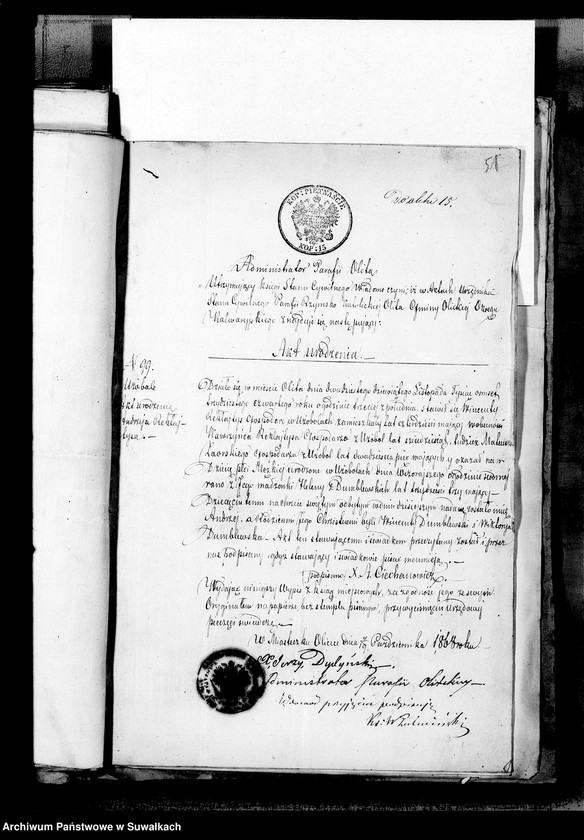 51
KOP: PIĘTNAŚCIE
KOP: 15
15.
Administrator Parafii Olita
Utrzymujący księgi Stanu Cywilnego Wiadomo czyni, iż w Aktach Urzędnika
Stanu Cywilnego Parafii Rzymsko Katolickiej Olita Gminy Olickiej Okręgu
Kalwaryjskiego znajduje się, następujący:
Akt urodzenia.
N 99.
Urźbale
Akt urodzenia
Andrzeja
Działo się w mieście Olita dnia dwudziestego dziewiątego Listopada Tysiąc ośmset
trzydziestego czwartego roku o godzinie trzeciej z południa. Stawił się Wincenty
Gospodarz w zamieszkały lat czterdzieści mający w obecności
Wawrzyńca Gospodarza z lat sześćdziesiąt, tudzież Mateusza
Gospodarza z lat dwadzieścia pięć mających, y okazał nam
Dziecię płci Męzkiej urodzone w dnia Wczorajszego o godzinie siódmej
rano z Jego małżonki Heleny z Dumblewskich lat trzydzieści trzy mającej
Dziecięciu temu na chrzcie świętym odbytym w dniu dzisiejszym nadane zostało imię
Andrzej, a Rodzicami jego Chrzestnemi byli Wincenty Dumblewski i Wiktorya
Dumblewska. Akt ten stawającemu i świadkom przeczytany został i przez
nas podpisany, gdyż stawający i świadkowie pisać nieumieją.
(podpisano) X. A. Ciechanowicz
Wydając niniejszy Wypis z ksiąg miejscowych, za zgodność jego ze swoim
Oryginałem na papierze bez stempla pisanym, przy wyciśnięciu Urzędowej
pieczęci świadczę.
W Miasteczku Olicie dnia Października 1868 roku
X. Jerzy Dydyński
Administrator Parafii Olickiej
przyjęcia podpisuję
Ks: W
Archiwum Państwowe w Suwałkach